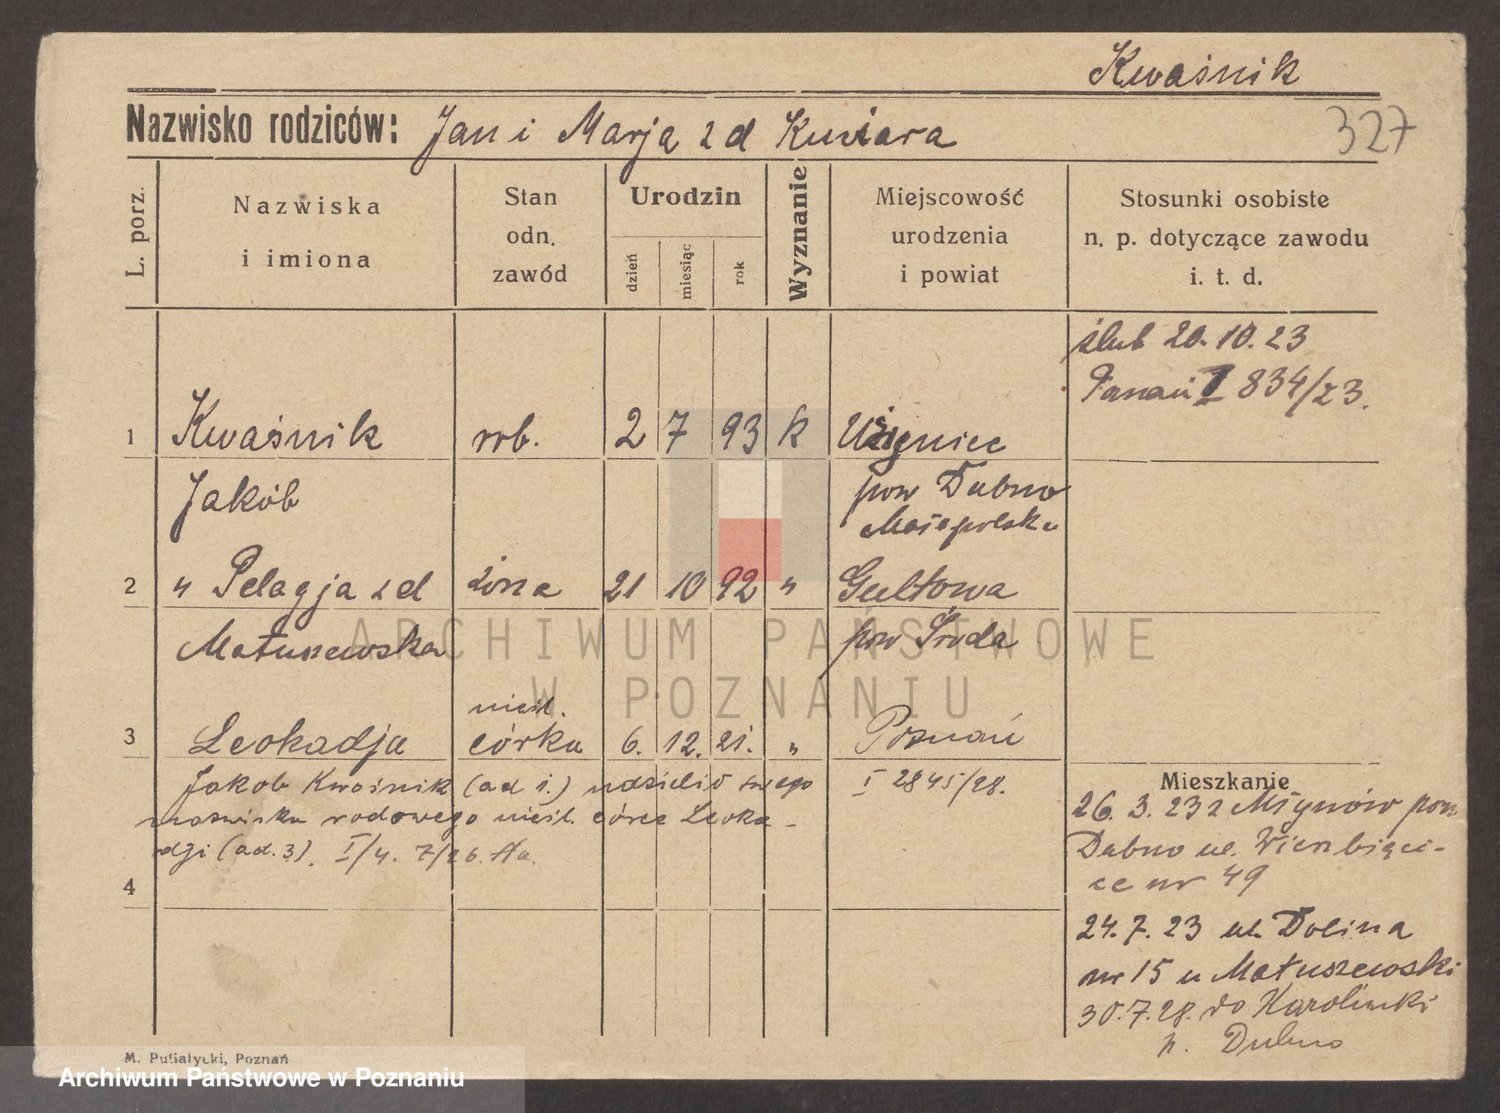 Kwaśnik
Nazwisko rodziców: Jan i Marja z d Kuriara
327
L. porz.
Nazwiska
i imiona
Stan
odn.
zawód
Urodzin
dzień
miesiąc
rok
Wyznanie
Miejscowość
urodzenia
i powiat
Stosunki osobiste
n. p. dotyczące zawodu
i. t. d.
ślub 20.10.23
Poznań I 834/23.
1 Kwaśnik rob. 2 7 93 k
Jakób pow Dubno
Małopolska
2 " Pelagja z d żona 21 10 92 " Gultowa
Matuszewska pow Środa
nieśl.
3 Leokadja córka 6. 12. 21. " Poznań
Jakob Kwaśnik (ad 1.) udzielił swego I 2845/28.
nazwiska rodowego nieśl. córce Leoka-
dji (ad. 3). I/4. 7/26.
4
Mieszkanie
26. 3. 23 z Młynów pow
Dubno ul. Wierzbięci-
ce nr 49
24. 7. 23 ul. Dolina
nr 15 u Matuszewski
30.7.28. do Karolinki
p. Dubno
M. Putiatycki, Poznań
ARCHIWUM PAŃSTWOWE
W POZNANIU
Archiwum Państwowe w Poznaniu